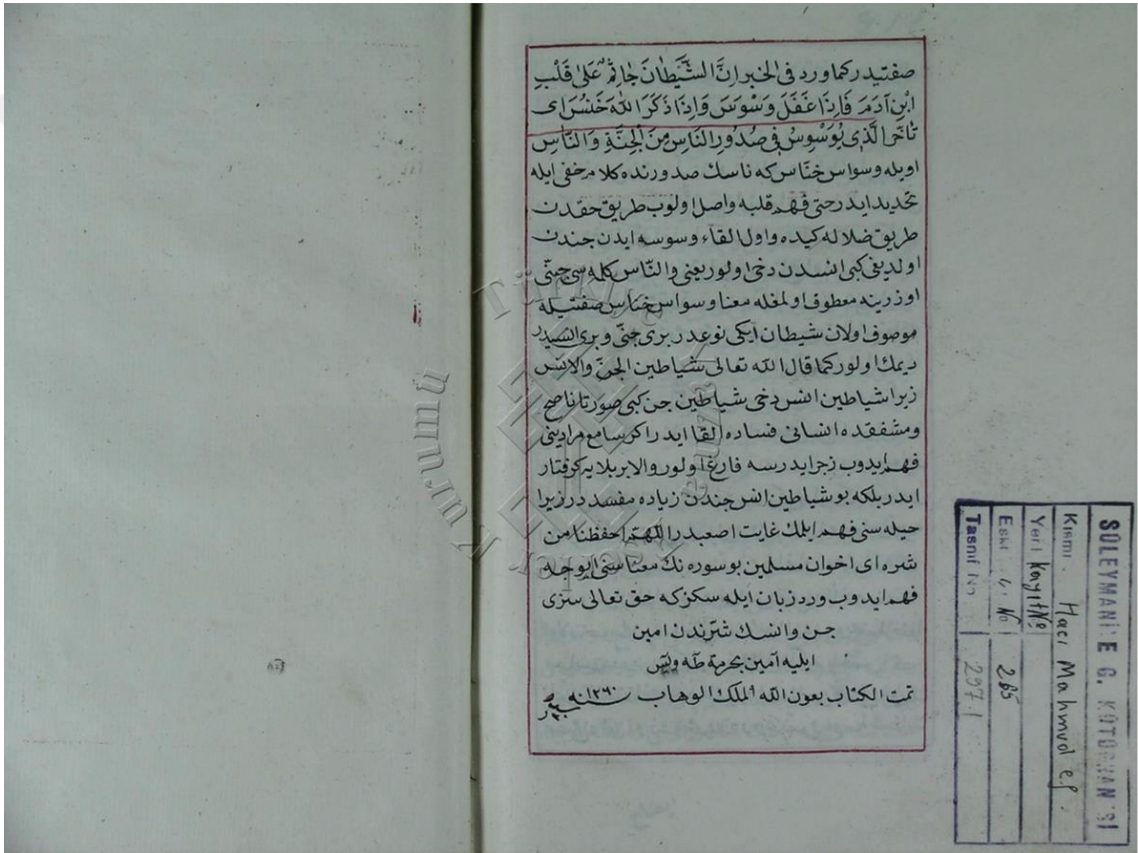 صفتيدر كما ورد فى الخبر اِنَّ الشَّيْطَانَ جَاثِمٌ عَلىٰ قَلْبِ
ابْنِ آدَمَ فَاِذَا غَفَلَ وَسْوَسَ وَاِذَا ذَكَرَ اللّٰهَ خَنَسَ اى
تَاَخَّرَ الَّذى يُوَسْوِسُ فى صُدُورِ النَّاسِ مِنَ الْجِنَّةِ وَالنَّاسِ
اويله وسواس خنّاس كه ناسك صدورنده كلام خفى ايله
تحديد ايدر حتى فهم قلبه واصل اولوب طريق حقدن
طريق ضلاله كيده و اول القاء وسوسه ايدن جندن
اولديغى كبى انسدن دخى اولور يعنى والنّاس كلمه سى جنّى
اوزرينه معطوف اولمغله معنا وسواس خناس صفتيله
موصوف اولان شيطان ايكى نوعدر برى جنّى و برى انسيدر
ديمك اولور كما قال الله تعالى شياطين الجنّ والانس
زيرا شياطين انس دخى شياطين جن كبى صورتا ناصح
ومشفقده انسانى فساده القا ايدر اكر سامع مرادينى
فهم ايدوب زجر ايدرسه فارغ اولور والا بر بلايه كرفتار
ايدر بلكه بو شياطين انس جندن زياده مفسددر زيرا
حيله سنى فهم ايلمك غايت اصعبدر اللهمّ احفظنا من
شره اى اخوان مسلمين بو سوره نك معناسنى بو وجه
فهم ايدوب ورد زبان ايله سكز كه حق تعالى سزى
جن وانسك شرّندن امين
ايليه آمين بحرمة طٰه ويٰس
تمت الكتاب بعون الله الملك الوهاب ١٢٦٠
SÜLEYMANİYE G. KÜTÜPHANESİ
Kısmı Hacı Mahmud ef.
Yeri Kayıt No
Eski No 265
Tasnif No 297.1
Türkiye